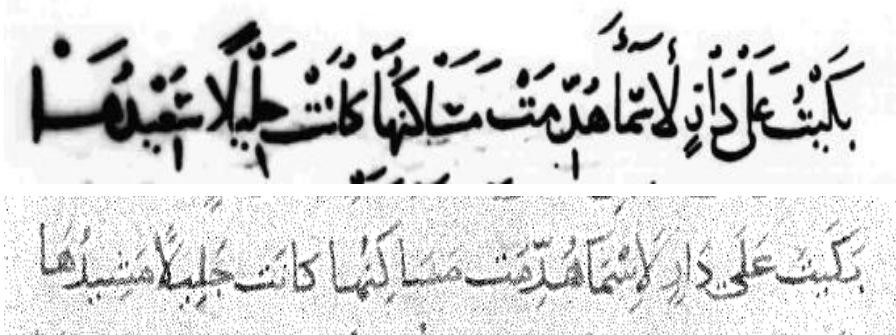 بَكَيْتُ عَلَىٰ دَارٍ لِأَسْمَاءَ هُدِّمَتْ مَسَاكِنُهَا كَانَتْ جَلِيلًا مَشِيدُهَا
بَكَيتُ عَلَى دَارٍ لِاَسْمَآ هُدِّمَت مَسَاكِنُهَا كانَت جَلِيلًا مَشِيدُهَا